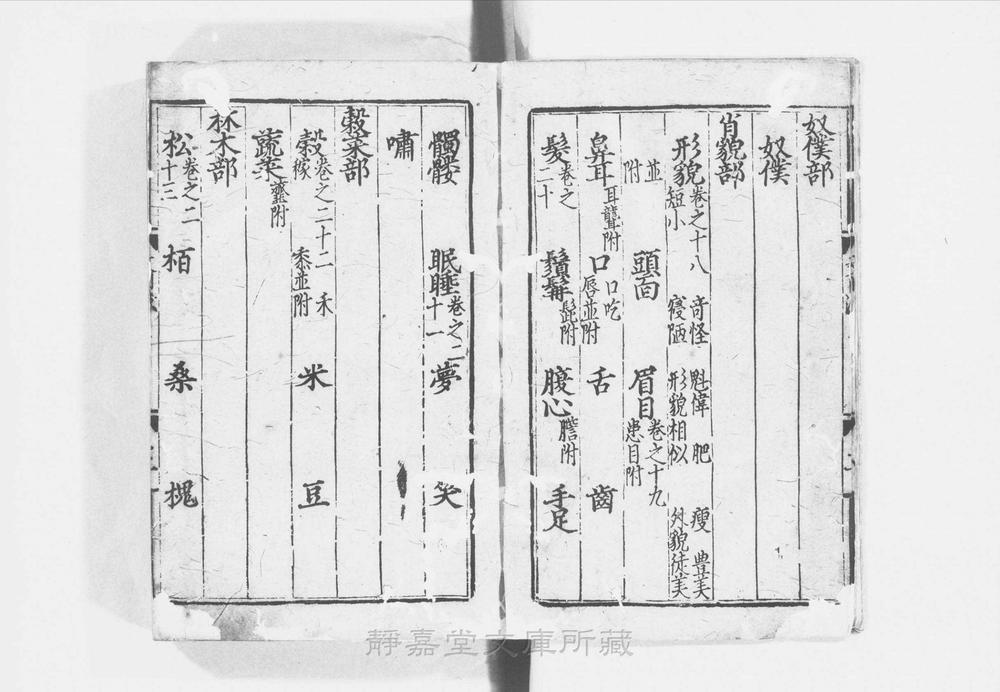 奴僕部
奴僕
肖貌部
形貌 卷之十八 短小 竒怪 寑陋 魁偉 形貌相似 肥 瘦 豊美 外貌徒美
並附 頭面 眉目 卷之十九 患目附
鼻耳 耳聾附 口 口吃 唇並附 舌 齒
髮 卷之二十 鬚髯 髭附 腹心 膽附 手足
髑髏 眠睡 卷之二十一 夢 笑
嘯
穀菜部
穀 卷之二十二 禾 稼 黍並附 米 豆
蔬菜 虀附
林木部
松 卷之二十三 栢 桑 槐
靜嘉堂文庫所藏